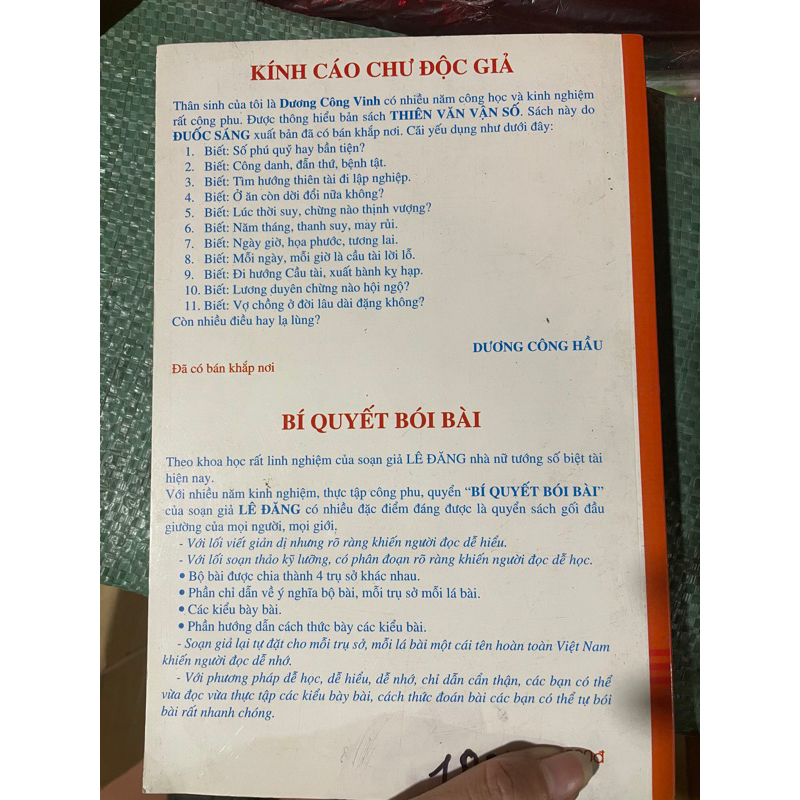 KÍNH CÁO CHƯ ĐỘC GIẢ
Thân sinh của tôi là Dương Công Vinh có nhiều năm công học và kinh nghiệm
rất công phu. Được thông hiểu bản sách THIÊN VĂN VẬN SỐ. Sách này do
ĐUỐC SÁNG xuất bản đã có bán khắp nơi. Cái yếu dụng như dưới đây:
1. Biết: Số phú quý hay bần tiện?
2. Biết: Công danh, đẳn thứ, bệnh tật.
3. Biết: Tìm hướng thiên tài đi lập nghiệp.
4. Biết: Ở ăn còn dời đổi nữa không?
5. Biết: Lúc thời suy, chừng nào thịnh vượng?
6. Biết: Năm tháng, thanh suy, may rủi.
7. Biết: Ngày giờ, họa phước, tương lai.
8. Biết: Mỗi ngày, mỗi giờ là cầu tài lời lỗ.
9. Biết: Đi hướng Cầu tài, xuất hành kỵ hạp.
10. Biết: Lương duyên chừng nào hội ngộ?
11. Biết: Vợ chồng ở đời lâu dài đặng không?
Còn nhiều điều hay lạ lùng?
DƯƠNG CÔNG HẦU
Đã có bán khắp nơi
BÍ QUYẾT BÓI BÀI
Theo khoa học rất linh nghiệm của soạn giả LÊ ĐĂNG nhà nữ tướng số biệt tài
hiện nay.
Với nhiều năm kinh nghiệm, thực tập công phu, quyển “BÍ QUYẾT BÓI BÀI”
của soạn giả LÊ ĐĂNG có nhiều đặc điểm đáng được là quyển sách gối đầu
giường của mọi người, mọi giới,
- Với lối viết giản dị nhưng rõ ràng khiến người đọc dễ hiểu.
- Với lối soạn thảo kỹ lưỡng, có phân đoạn rõ ràng khiến người đọc dễ học.
• Bộ bài được chia thành 4 trụ sở khác nhau.
• Phần chỉ dẫn về ý nghĩa bộ bài, mỗi trụ sở mỗi lá bài.
• Các kiểu bày bài.
• Phần hướng dẫn cách thức bày các kiểu bài.
- Soạn giả lại tự đặt cho mỗi trụ sở, mỗi lá bài một cái tên hoàn toàn Việt Nam
khiến người đọc dễ nhớ.
- Với phương pháp dễ học, dễ hiểu, dễ nhớ, chỉ dẫn cẩn thận, các bạn có thể
vừa đọc vừa thực tập các kiểu bày bài, cách thức đoán bài các bạn có thể tự bói
bài rất nhanh chóng.